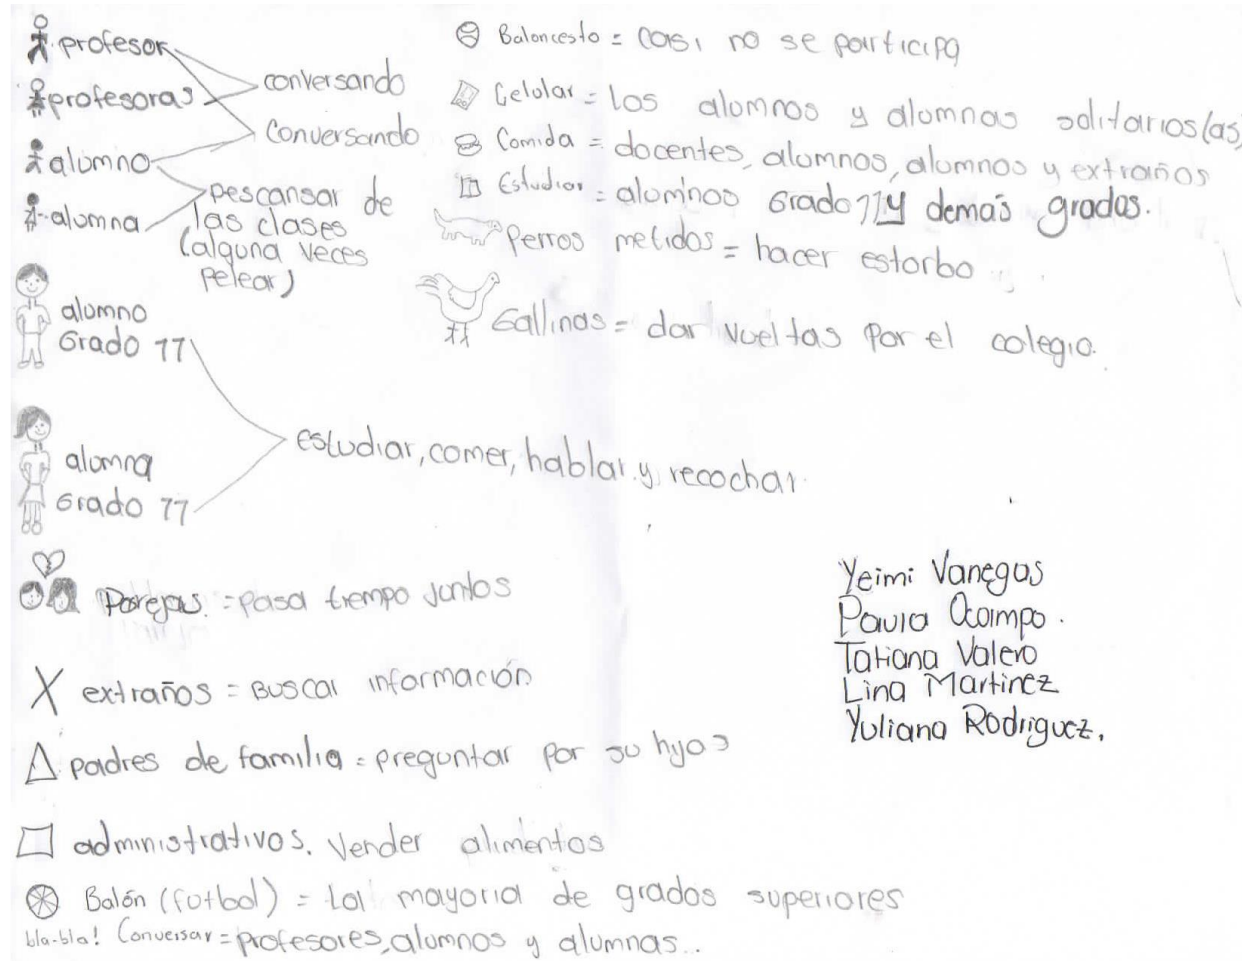 profesor
profesoras
conversando
alumno
conversando
alumna
Descansar de
las clases
(alguna veces
pelear)
alumno
Grado 11
alumna
Grado 11
estudiar, comer, hablar y recochar.
Parejas = pasa tiempo juntos
X extraños = Buscar información
padres de familia = preguntar por su hijos
administrativos. Vender alimentos
Balón (futbol) = La mayoria de grados superiores
bla-bla! Conversar = profesores, alumnos y alumnas...
Baloncesto = Casi no se participa
Celular = Los alumnos y alumnas solitarios(as)
Comida = docentes, alumnos, alumnos y extraños
Estudiar = alumnos Grado 11 y demás grados.
Perros metidos = hacer estorbo
Gallinas = dar vueltas por el colegio.
Yeimi Vanegas
Paula Ocampo.
Tatiana Valero
Lina Martinez
Yuliana Rodriguez.